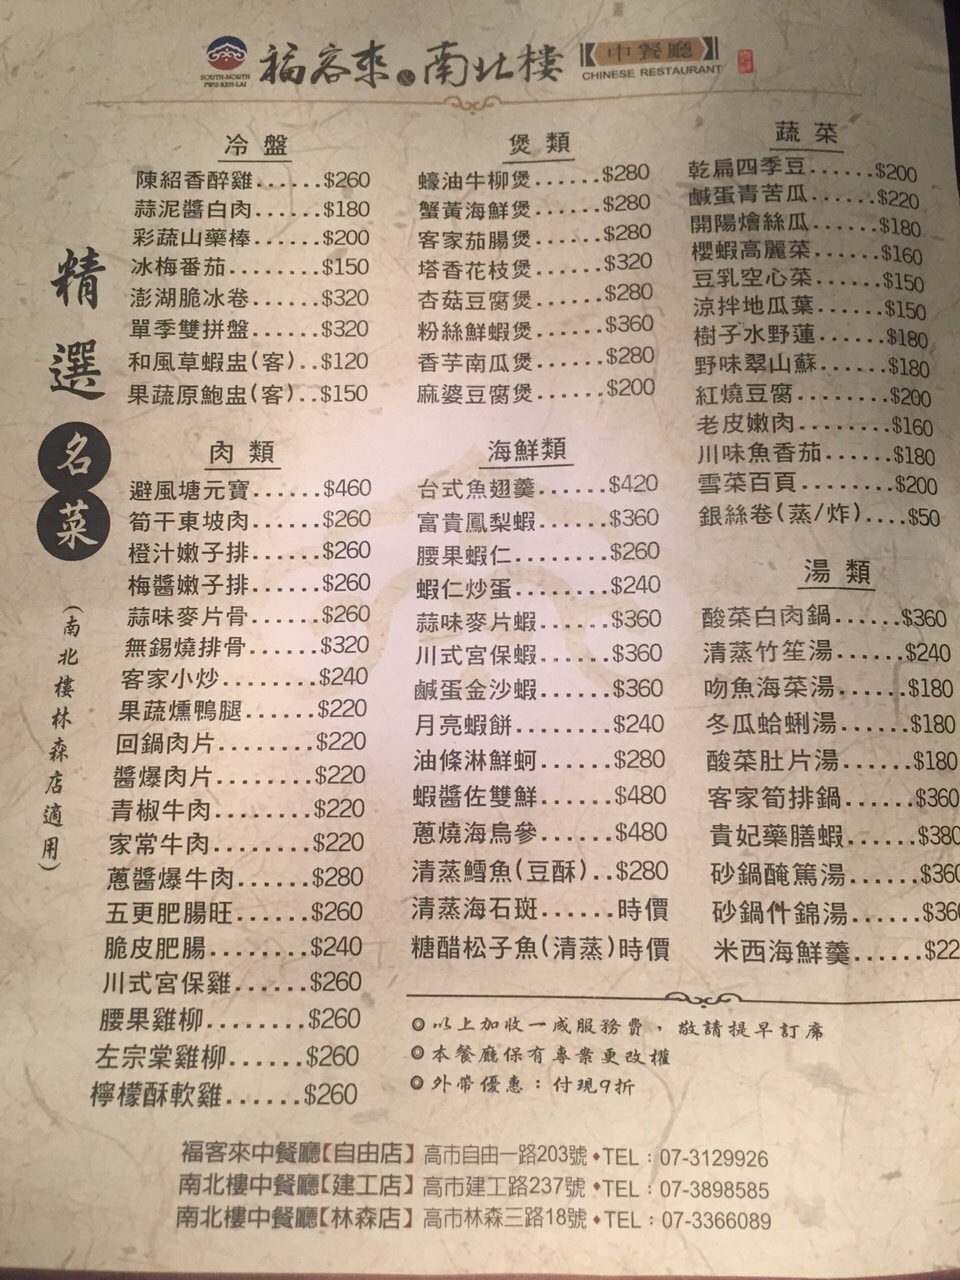 福客來 南北樓 中餐廳
SOUTH-NORTH
FWU-KEH-LAI
CHINESE RESTAURANT
精選名菜
(南北樓林森店適用)
冷盤
陳紹香醉雞......$260
蒜泥醬白肉......$180
彩蔬山藥棒......$200
冰梅番茄........$150
澎湖脆冰卷......$320
單季雙拼盤......$320
和風草蝦盅(客)..$120
果蔬原鮑盅(客)..$150
肉類
避風塘元寶......$460
筍干東坡肉......$260
橙汁嫩子排......$260
梅醬嫩子排......$260
蒜味麥片骨......$260
無錫燒排骨......$320
客家小炒........$240
果蔬燻鴨腿......$220
回鍋肉片........$220
醬爆肉片........$220
青椒牛肉........$220
家常牛肉........$220
蔥醬爆牛肉......$280
五更肥腸旺......$260
脆皮肥腸........$240
川式宮保雞......$260
腰果雞柳........$260
左宗棠雞柳......$260
檸檬酥軟雞......$260
煲類
蠔油牛柳煲......$280
蟹黃海鮮煲......$280
客家茄腸煲......$280
塔香花枝煲......$320
杏菇豆腐煲......$280
粉絲鮮蝦煲......$360
香芋南瓜煲......$280
麻婆豆腐煲......$200
海鮮類
台式魚翅羹......$420
富貴鳳梨蝦......$360
腰果蝦仁........$260
蝦仁炒蛋........$240
蒜味麥片蝦......$360
川式宮保蝦......$360
鹹蛋金沙蝦......$360
月亮蝦餅........$240
油條淋鮮蚵......$280
蝦醬佐雙鮮......$480
蔥燒海烏參......$480
清蒸鱈魚(豆酥)..$280
清蒸海石斑......時價
糖醋松子魚(清蒸)時價
蔬菜
乾扁四季豆......$200
鹹蛋青苦瓜......$220
開陽燴絲瓜......$180
櫻蝦高麗菜......$160
豆乳空心菜......$150
涼拌地瓜葉......$150
樹子水野蓮......$180
野味翠山蘇......$180
紅燒豆腐........$200
老皮嫩肉........$160
川味魚香茄......$180
雪菜百頁........$200
銀絲卷(蒸/炸)....$50
湯類
酸菜白肉鍋......$360
清蒸竹笙湯......$240
吻魚海菜湯......$180
冬瓜蛤蜊湯......$180
酸菜肚片湯......$180
客家筍排鍋......$360
貴妃藥膳蝦......$380
砂鍋醃篤湯......$360
砂鍋什錦湯......$36
米西海鮮羹......$22
◎以上加收一成服務費，敬請提早訂席
◎本餐廳保有專業更改權
◎外帶優惠：付現9折
福客來中餐廳【自由店】高市自由一路203號◆TEL：07-3129926
南北樓中餐廳【建工店】高市建工路237號◆TEL：07-3898585
南北樓中餐廳【林森店】高市林森三路18號◆TEL：07-3366089